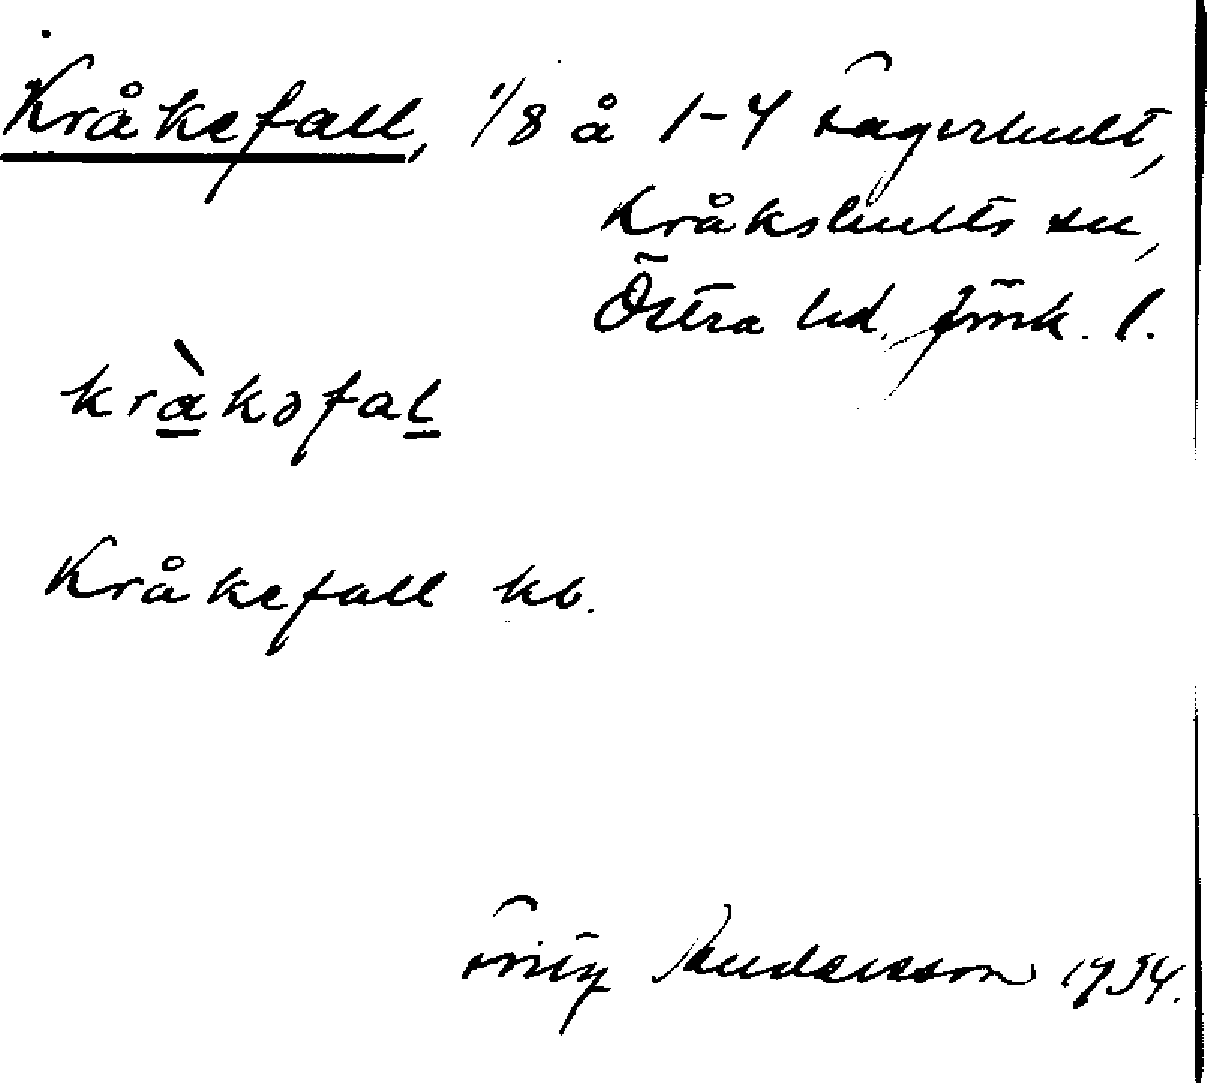 Kråkefall, 1/8 å 1-4 Fagerhult,
Kråkshults sn,
Östra hd, Jönk. l.
kràkəfal
Kråkefall kb.
Fritz Andersson 1934.